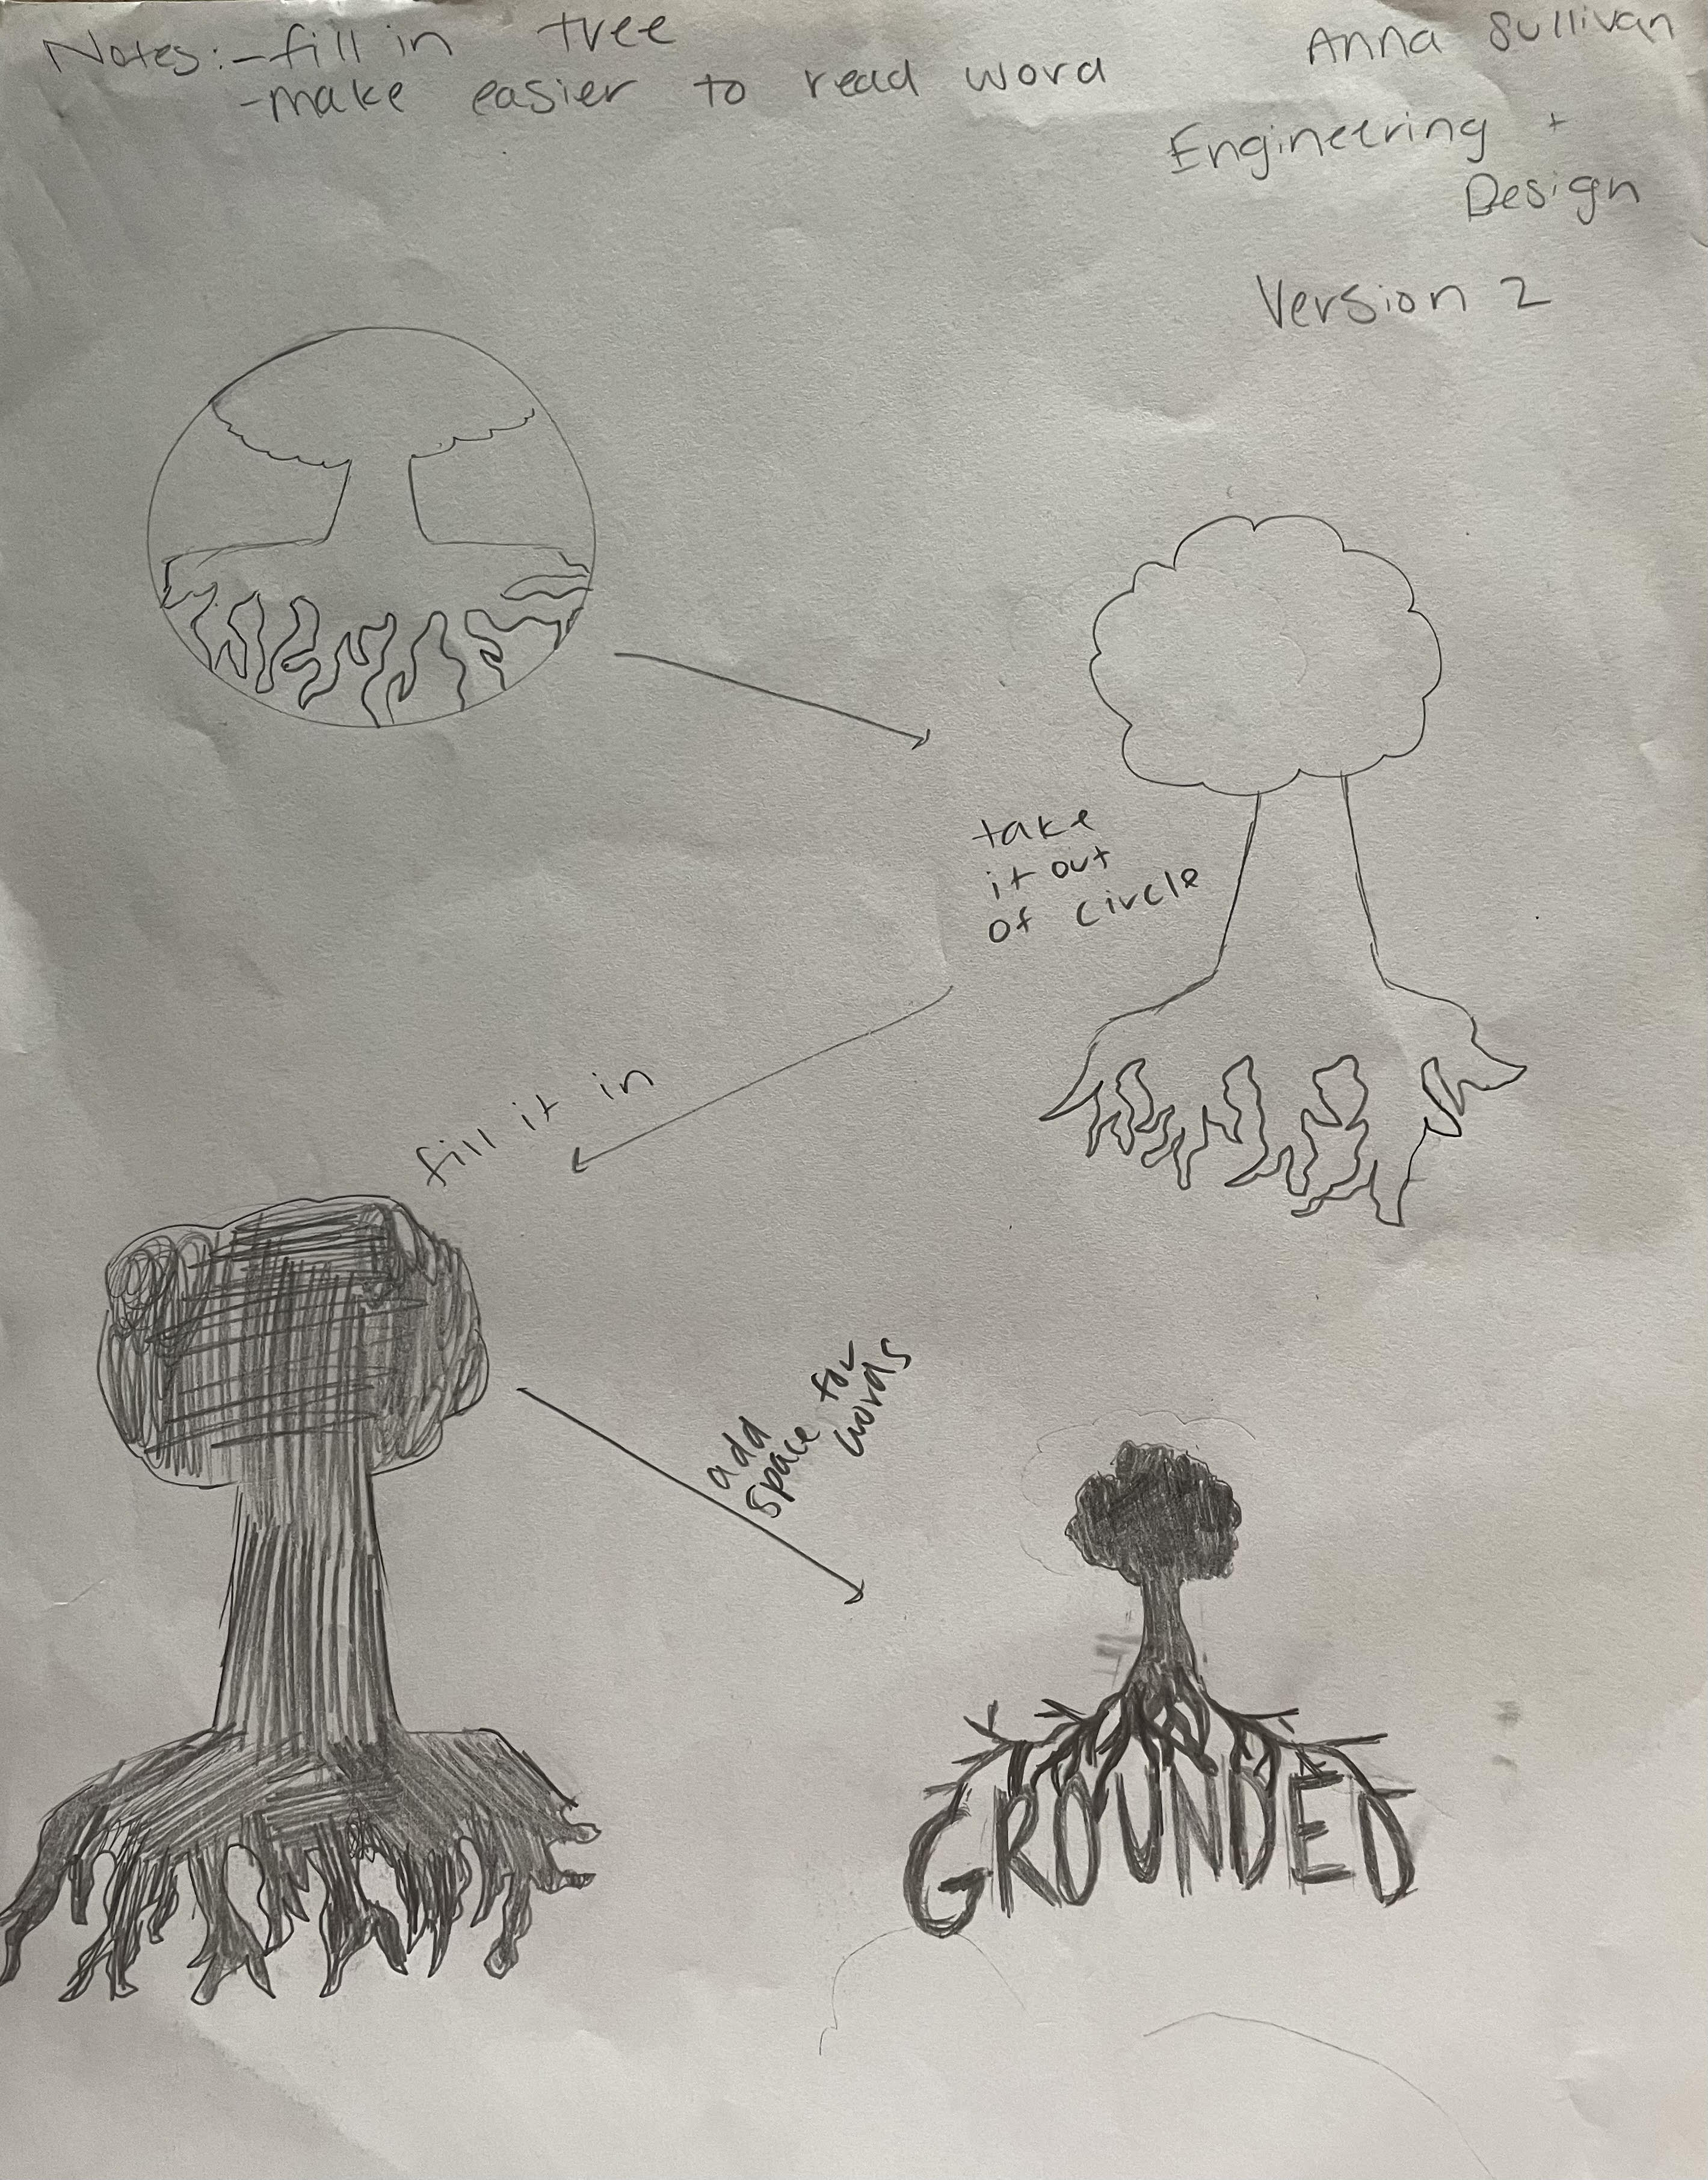 Notes: - fill in tree
- make easier to read word
Anna Sullivan
Engineering +
Design
Version 2
take
it out
of circle
fill it in
add
space for
words
GROUNDED